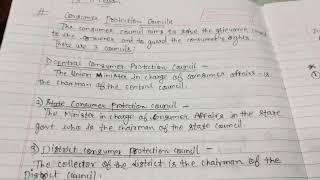 # Consumer Protection Councils
The consumer council aims to raise the grievance
to the consumer and to guard the consumer's rights.
There are 3 councils:
1) Central Consumer Protection Council -
The Union Minister in charge of consumer affairs is
the chairman of the central council.
2) State Consumer Protection Council -
The Minister in charge of Consumer Affairs in the state
govt who is the chairman of the state council.
3) District Consumer Protection Council -
The collector of the district is the chairman of the
District council.